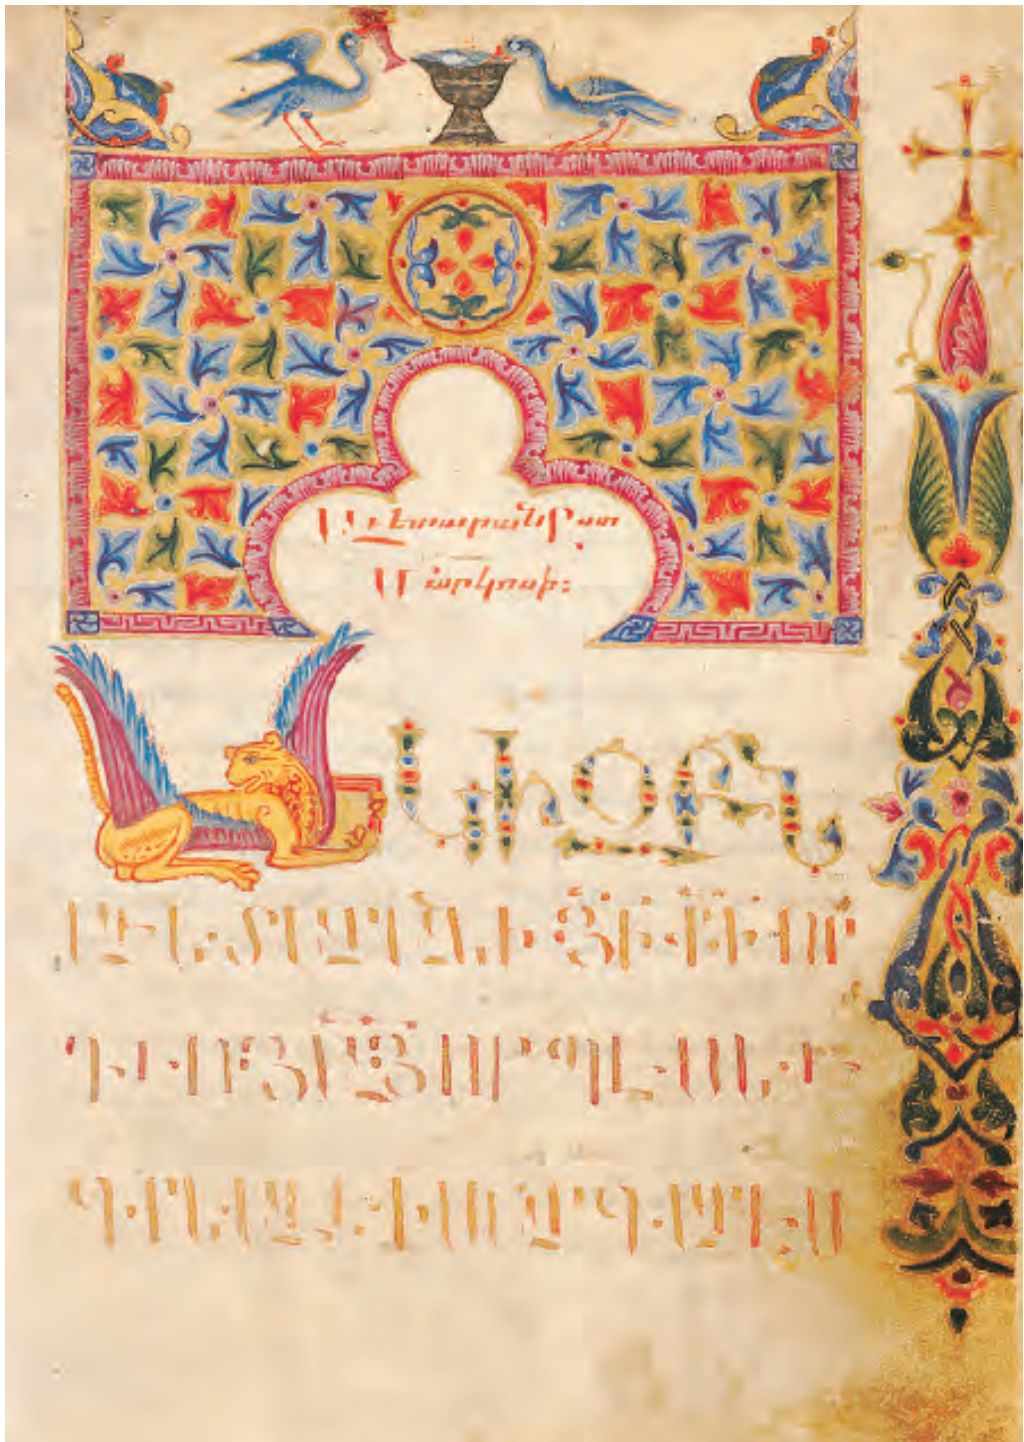 Աւետարան Ըստ
Մարկոսի:
ՍԿԻԶԲՆ
ԱՒԵՏԱՐԱՆԻ ՅԻ ՔԻ ՈՐ
ԴՒՈՅ ԱՅ ՈՐՊԷՍ ԵՒ
ԳՐԵԱԼ Է Ի ՄԱՐԳԱՐԷՍ